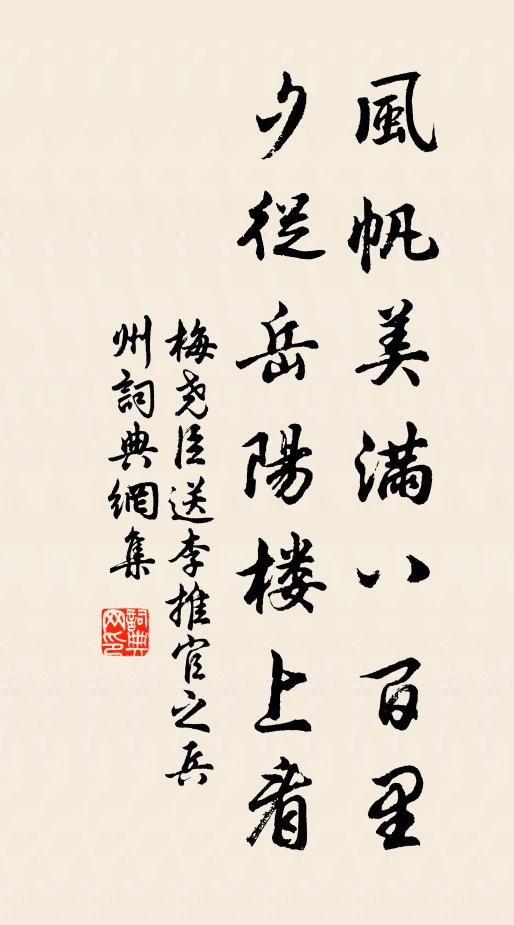 風帆美满八百里
夕從岳陽楼上看
梅尧臣送李推官之兵
州詞典網集
詞典
网印